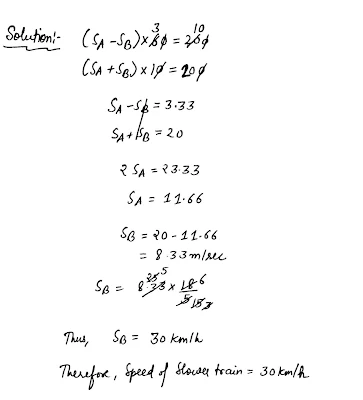 Solution:- (SA - SB) × 60 = 200
3 10
(SA + SB) × 10 = 200
SA - SB = 3.33
SA + SB = 20
2 SA = 23.33
SA = 11.66
SB = 20 - 11.66
= 8.33 m/sec
SB = 8.33 × 18/5
25 5 6
3
Thus, SB = 30 km/h
Therefore, Speed of slower train = 30 km/h